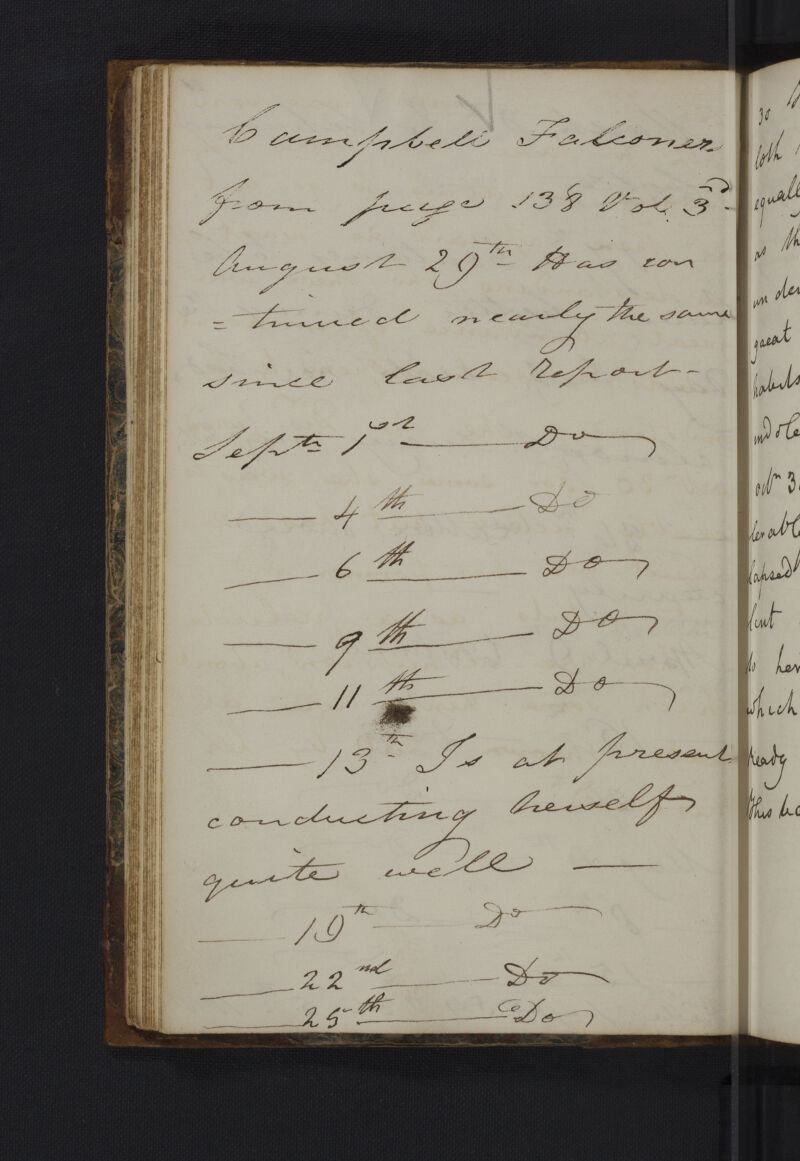 Campbell Falconer
from page 138 Vol. 3rd
August 29th Has con
= tinued nearly the same
since last report -
Septr 1st — Do
— 4th — Do
— 6th — Do
— 9th — Do
— 11th — Do
— 13th Is at present
conducting herself
quite well —
— 19th — Do
— 22nd — Do
— 25th — Do
30
loth
equall
as th
un der
great
habits
indole
octr 3
lerable
lapsed
lent
to her
which
ready
this